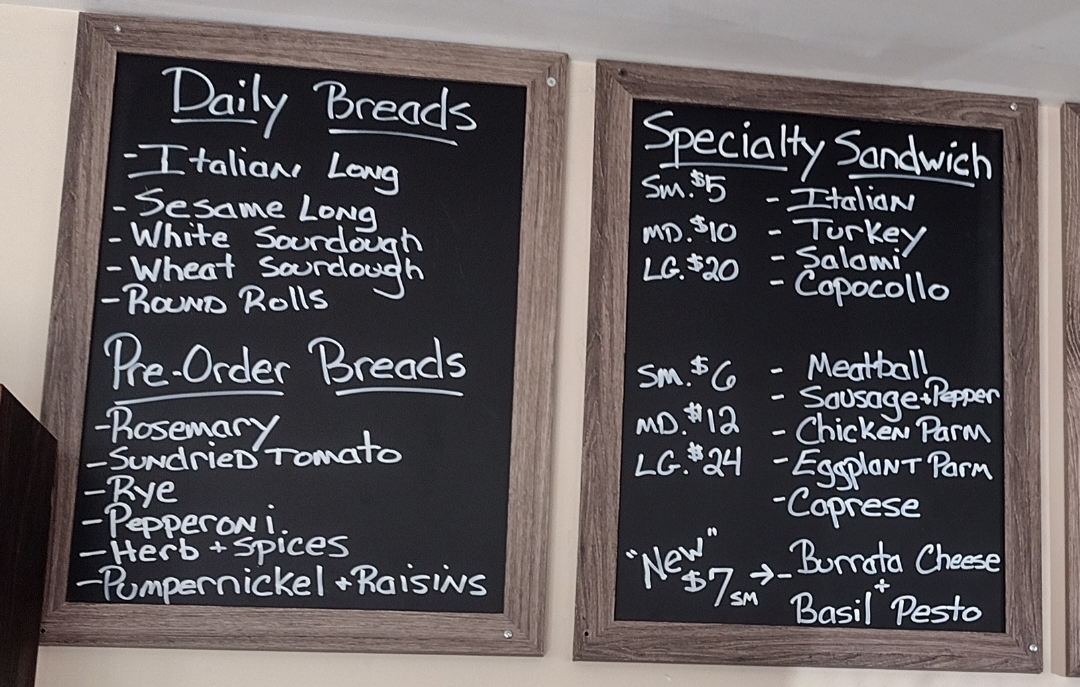 Daily Breads
- Italian Long
- Sesame Long
- White Sourdough
- Wheat Sourdough
- Round Rolls
Pre-Order Breads
- Rosemary
- Sundried Tomato
- Rye
- Pepperoni.
- Herb + Spices
- Pumpernickel + Raisins
Specialty Sandwich
Sm. $5 - Italian
MD. $10 - Turkey
LG. $20 - Salami
- Capocollo
Sm. $6 - Meatball
- Sausage + Pepper
MD. $12 - Chicken Parm
LG. $24 - Eggplant Parm
- Caprese
"New" $7 SM → - Burrata Cheese
+
Basil Pesto